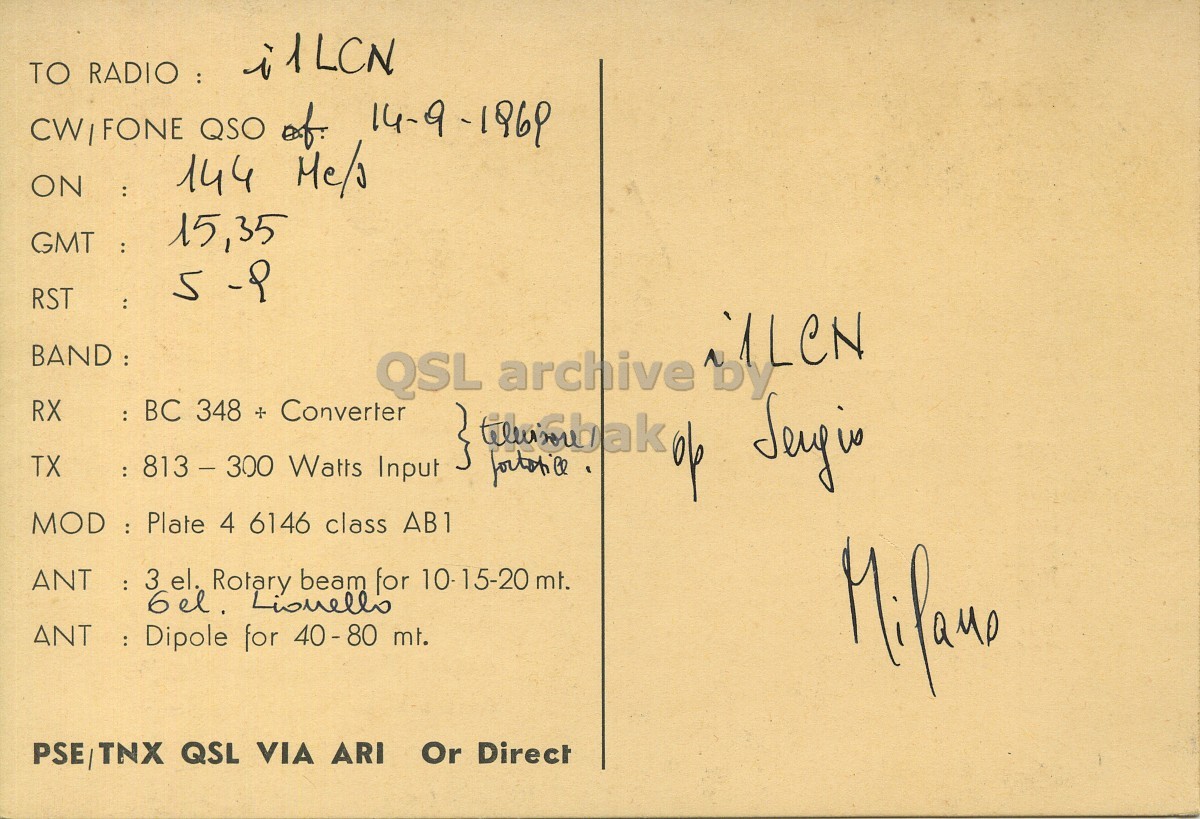 TO RADIO : i1LCN
CW/FONE QSO of: 14-9-1969
ON : 144 Mc/s
GMT : 15,35
RST : 5-9
BAND :
RX : BC 348 + Converter
TX : 813 – 300 Watts Input
televisore!
portatile.
MOD : Plate 4 6146 class AB1
ANT : 3 el. Rotary beam for 10-15-20 mt.
6 el. Lionello
ANT : Dipole for 40-80 mt.
PSE/TNX QSL VIA ARI Or Direct
i1LCN
op Sergio
Milano
QSL archive by
ik6bak